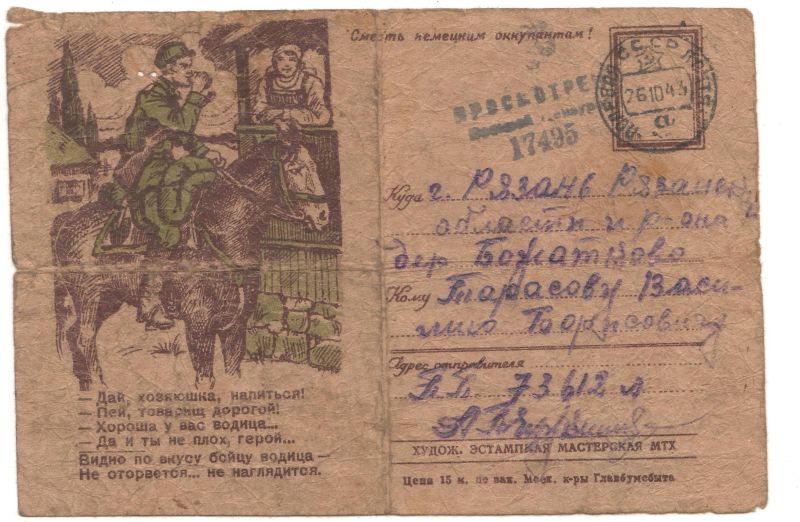 Смерть немецким оккупантам!
ПОЛЕВАЯ СССР ПОЧТА
26 10 43
а
ПРОСМОТРЕ
Военной
17495
Куда г. Рязань Рязанск
области и р-она
дер Божатково
Кому Тарасову Васи-
лию Борисовичу
Адрес отправителя
П.П. 73612 л
ХУДОЖ. ЭСТАМПНАЯ МАСТЕРСКАЯ МТХ
Цена 15 к. по зак. Моск. к-ры Главбумсбыта
— Дай, хозяюшка, напиться!
— Пей, товарищ дорогой!
— Хороша у вас водица...
— Да и ты не плох, герой...
Видно по вкусу бойцу водица —
Не оторвется... не наглядится.